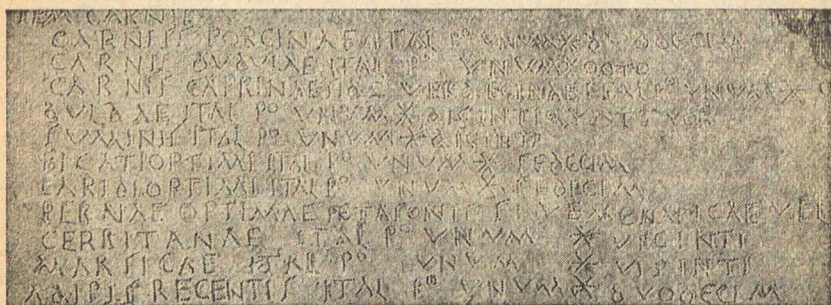 ITEM CARNIS
CARNIS PORCINAE ITAL Pº VNVM X DVODECIM
CARNIS BVBVLAE ITAL Pº VNVM X OCTO
CARNIS CAPRINAE SIVE VERBECINAE ITAL Pº VNVM X
BVLBAE ITAL Pº VNVM X BIGINTI QVATTVOR
SVMINIS ITAL Pº VNVM X BIGINTI
FICATI OPTIMI ITAL Pº VNVM X SEDECIM
LARIDI OPTIMI ITAL Pº VNVM X SEDECIM
PERNAE OPTIMAE PETASONIS SIVE MENAPICAE VEL
CERRITANAE ITAL Pº VNVM X VIGINTI
MARSICAE ITAL Pº VNVM X VIGINTI
ADIPIS RECENTIS ITAL Pº VNVM X DVODECIM